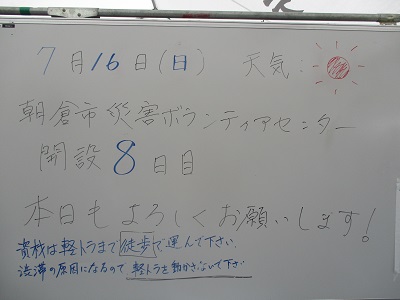 7月16日(日) 天気:
朝倉市災害ボランティアセンター
開設8日目
本日もよろしくお願いします!
資機は軽トラまで徒歩で運んで下さい.
渋滞の原因になるので軽トラを動かさないで下さい